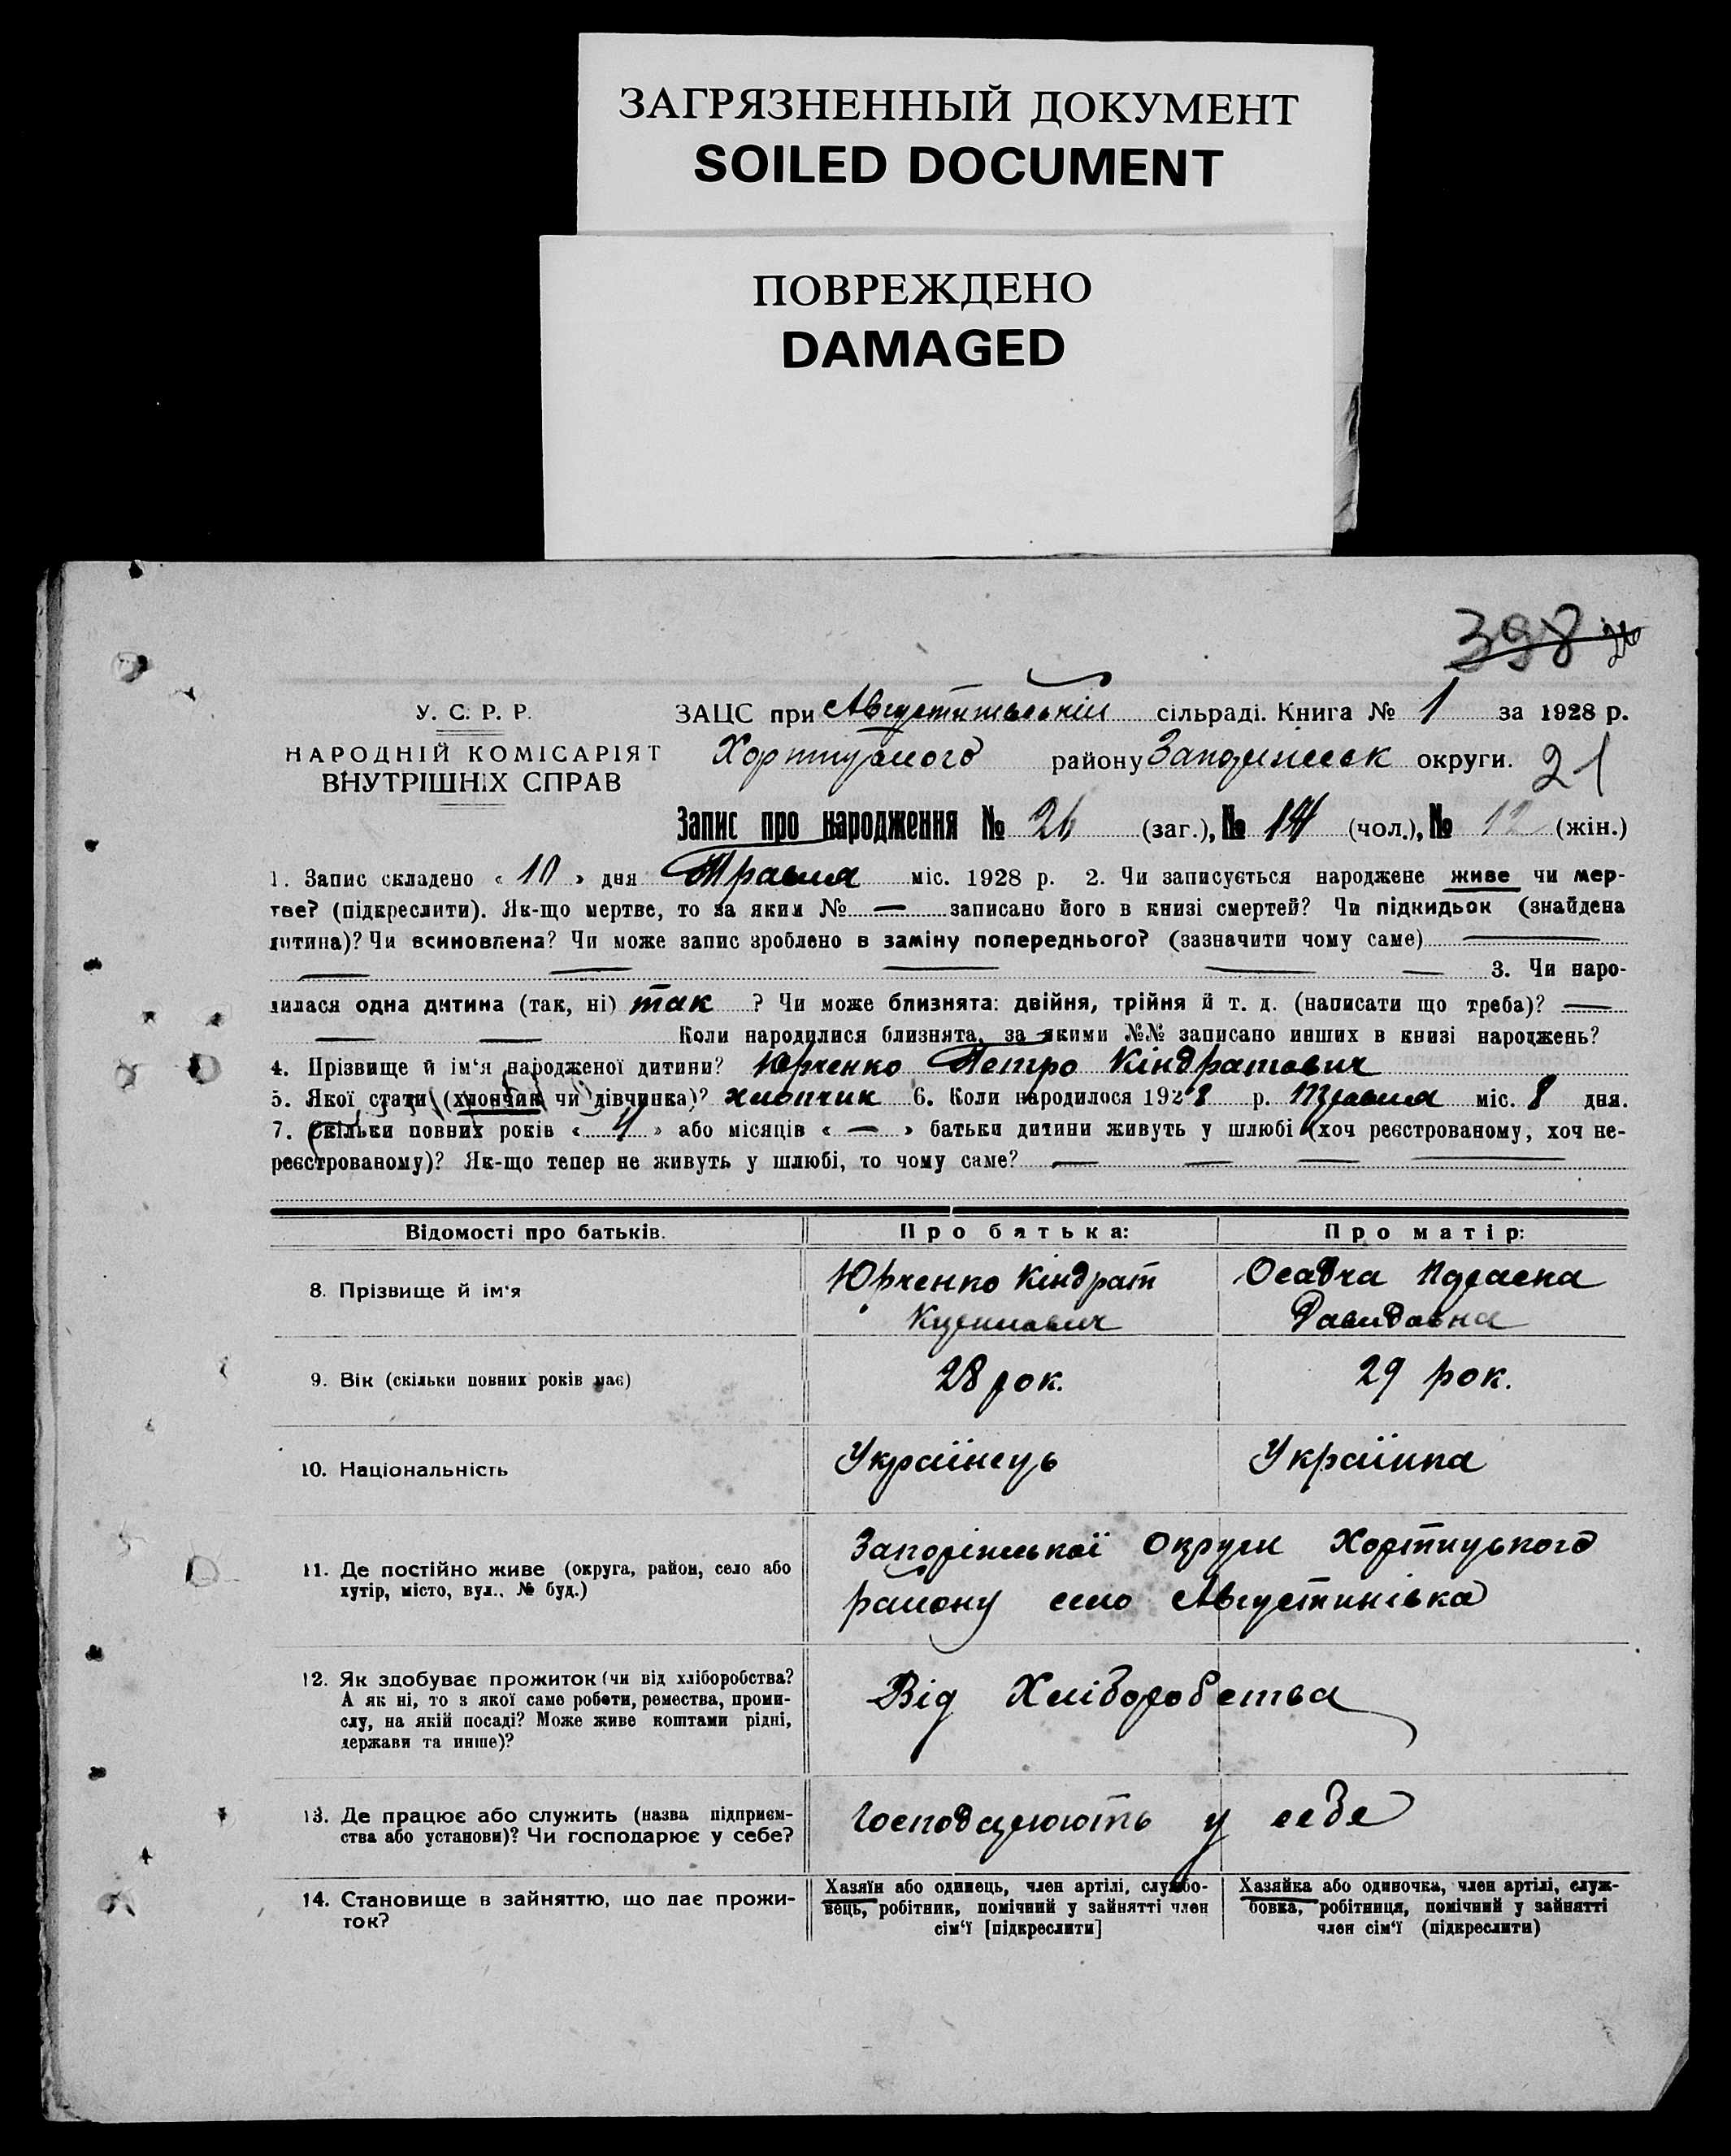 ЗАГРЯЗНЕННЫЙ ДОКУМЕНТ
SOILED DOCUMENT
ПОВРЕЖДЕНО
DAMAGED
398
У. С. Р. Р.
НАРОДНІЙ КОМІСАРІЯТ
ВНУТРІШНІХ СПРАВ
ЗАЦС при сільраді. Книга № 1 за 1928 р.
району округи.
21
Запис про народження № 26 (заг.), № 14 (чол.), № 12 (жін.)
1. Запис складено « 10 » дня Травня міс. 1928 р. 2. Чи записується народжене живе чи мер-
тве? (підкреслити). Як-що мертве, то за яким № — записано його в книзі смертей? Чи підкидьок (знайдена
дитина)? Чи всиновлена? Чи може запис зроблено в заміну попереднього? (зазначити чому саме) —
— — — — — 3. Чи наро-
дилася одна дитина (так, ні) так ? Чи може близнята: двійня, трійня й т. д. (написати що треба)? —
— — Коли народилися близнята, за якими №№ записано инших в книзі народжень?
4. Прізвище й ім‘я народженої дитини? Юрченко Петро Кіндратович
5. Якої стати (хлопчик чи дівчинка)? хлопчик 6. Коли народилося 1928 р. Травня міс. 8 дня.
7. Скільки повних років « 4 » або місяців « — » батьки дитини живуть у шлюбі (хоч реєстрованому, хоч не-
реєстрованому)? Як-що тепер не живуть у шлюбі, то чому саме? — — — —
Відомості про батьків. Про батька: Про матір:
8. Прізвище й ім‘я
Юрченко Кіндрат
Осадча
Давидовна
9. Вік (скільки повних років має) 28 рок. 29 рок.
10. Національність Українець Українка
11. Де постійно живе (округа, район, село або
хутір, місто, вул., № буд.)
Запоріжської Округи Хортицького
району село Августинівка
12. Як здобуває прожиток (чи від хліборобства?
А як ні, то з якої саме роботи, ремества, проми-
слу, на якій посаді? Може живе коштами рідні,
держави та инше)?
Від Хліборобства
13. Де працює або служить (назва підприєм-
ства або установи)? Чи господарює у себе?
Господарюють у себе
14. Становище в зайняттю, що дає прожи-
ток?
Хазяїн або одинець, член артілі, службо-
вець, робітник, помічний у зайнятті член
сім‘ї [підкреслити]
Хазяйка або одиночка, член артілі, служ-
бовка, робітниця, помічний у зайнятті
член сім‘ї (підкреслити)